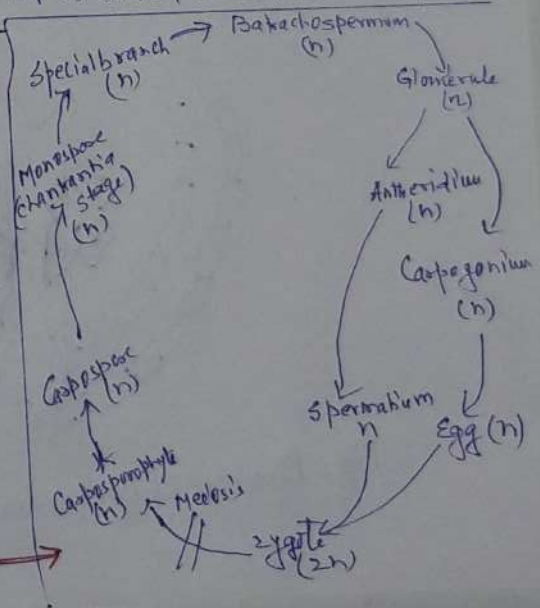 Batrachospermum
(n)
Glomerule
(n)
Antheridium
(n)
Carpogonium
(n)
Spermatium
n
Egg (n)
Zygote
(2n)
Meiosis
Carposporophyte
(n)
Carpospore
(n)
Monospore
(Chantransia
stage)
(n)
Special branch
(n)